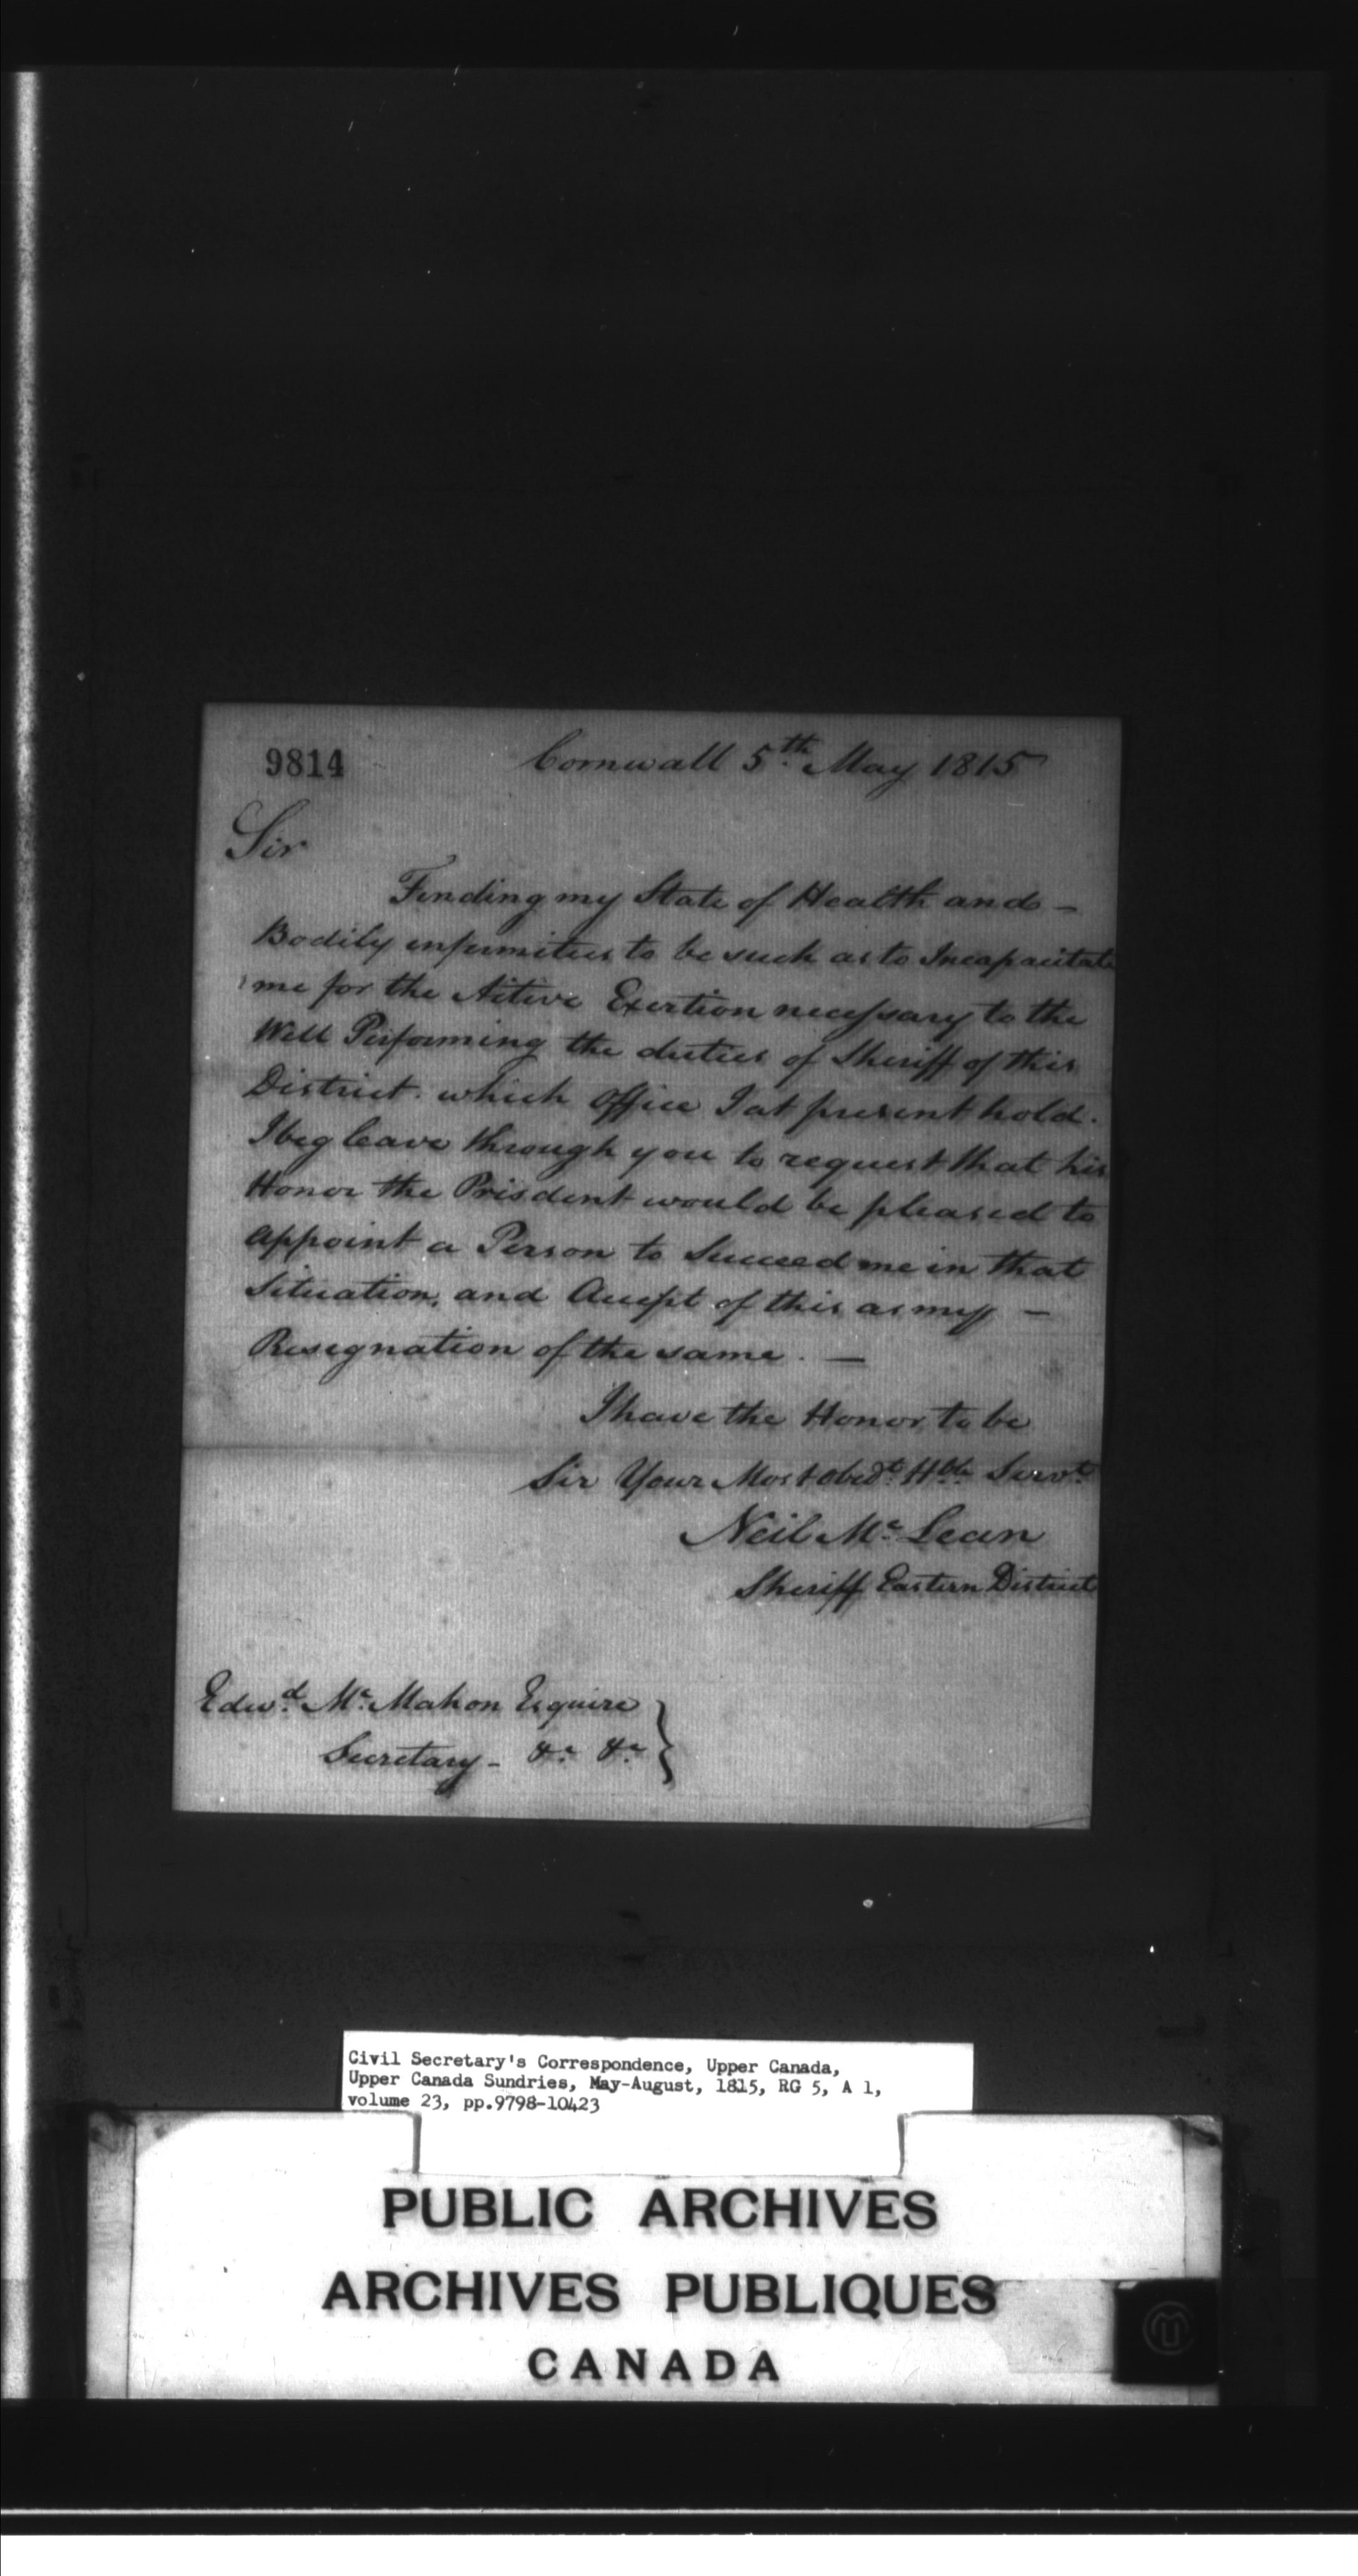 9814
Cornwall 5th May 1815
Sir
Finding my State of Health and –
Bodily infirmities to be such as to Incapacitate
me for the Active Exertion necessary to the
Well Performing the duties of Sheriff of this
District. which office I at present hold.
I beg leave through you to request that his
Honor the Prisdent would be pleased to
appoint a Person to Succeed me in that
Situation, and Accept of this as my –
Resignation of the same. –
I have the Honor to be
Sir Your Most obedt. Hble Servt.
Neil Mc Lean
Sheriff Eastern District
Edwd. Mc Mahon Esquire
Secretary – &c &c
Civil Secretary's Correspondence, Upper Canada,
Upper Canada Sundries, May-August, 1815, RG 5, A 1,
volume 23, pp.9798-10423
PUBLIC ARCHIVES
ARCHIVES PUBLIQUES
CANADA